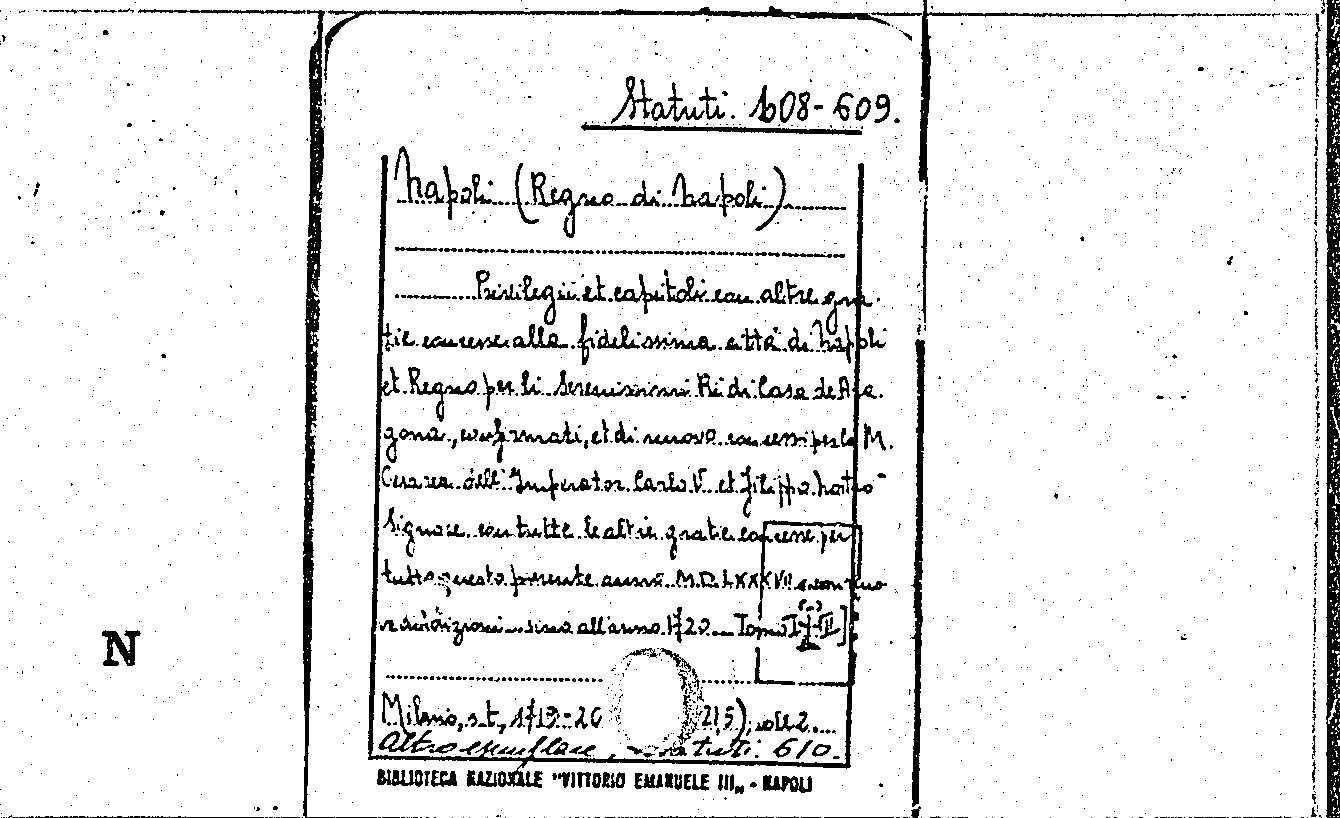 Statuti. 608-609.
Napoli (Regno di Napoli)
Privilegii et capitoli con altre gra-
tie concesse alla fidelissima città di Napoli
et Regno per li Serenissimi Rè di Casa de Ara-
gona, confirmati, et di nuovo concessi per la M.
Cesarea dell'Imperator Carlo V. et Filippo nostro
Signore con tutte le altre gratie concesse per
tutto questo presente anno M.D.LXXXVII e con
addizioni sino all'anno 1720. Tomo I [-II]
N
Milano, s.t., 1719-20 21,5), voll 2.
Altro esemplare, Statuti. 610.
BIBLIOTECA NAZIONALE "VITTORIO EMANUELE III" - NAPOLI